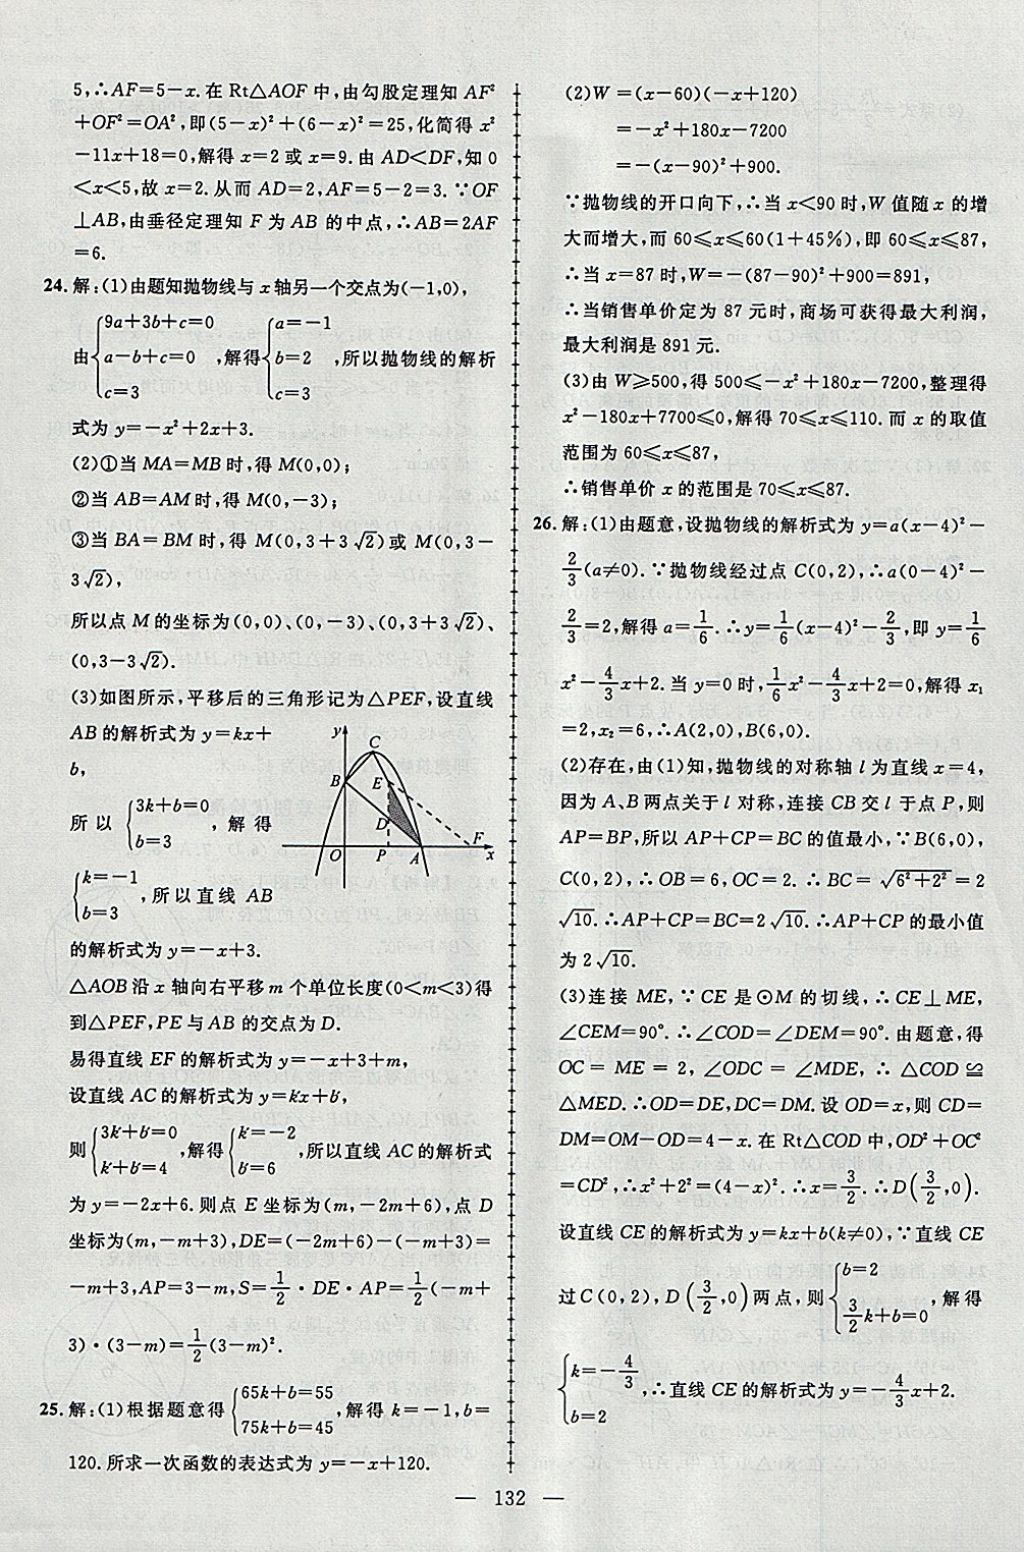 5,∴AF=5-x.在 Rt△AOF 中,由勾股定理知 AF²
+OF²=OA²,即(5-x)²+(6-x)²=25,化简得 x²
-11x+18=0,解得 x=2 或 x=9.由 AD<DF,知 0
<x<5,故 x=2.从而 AD=2,AF=5-2=3.∵OF
⊥AB,由垂径定理知 F 为 AB 的中点,∴AB=2AF
=6.
24.解:(1)由题知抛物线与 x 轴另一个交点为(-1,0),
由{9a+3b+c=0 a-b+c=0 c=3,解得{a=-1 b=2 c=3,所以抛物线的解析
式为 y=-x²+2x+3.
(2)①当 MA=MB 时,得 M(0,0);
②当 AB=AM 时,得 M(0,-3);
③当 BA=BM 时,得 M(0,3+3√2)或 M(0,3-
3√2),
所以点 M 的坐标为(0,0)、(0,-3)、(0,3+3√2)、
(0,3-3√2).
(3)如图所示,平移后的三角形记为△PEF,设直线
AB 的解析式为 y=kx+
b,
所以{3k+b=0 b=3,解得
{k=-1 b=3,所以直线 AB
y
C
B
E
D
O
P
A
F
x
的解析式为 y=-x+3.
△AOB 沿 x 轴向右平移 m 个单位长度(0<m<3)得
到△PEF,PE 与 AB 的交点为 D.
易得直线 EF 的解析式为 y=-x+3+m,
设直线 AC 的解析式为 y=k′x+b′,
则{3k′+b′=0 k′+b′=4,解得{k′=-2 b′=6,所以直线 AC 的解析式
为 y=-2x+6.则点 E 坐标为(m,-2m+6),点 D
坐标为(m,-m+3),DE=(-2m+6)-(-m+3)=
-m+3,AP=3-m,S=1/2·DE·AP=1/2(-m+
3)·(3-m)=1/2(3-m)².
25.解:(1)根据题意得{65k+b=55 75k+b=45,解得 k=-1,b=
120.所求一次函数的表达式为 y=-x+120.
(2)W=(x-60)(-x+120)
=-x²+180x-7200
=-(x-90)²+900.
∵抛物线的开口向下,∴当 x<90 时,W 值随 x 的增
大而增大,而 60≤x≤60(1+45%),即 60≤x≤87,
∴当 x=87 时,W=-(87-90)²+900=891,
∴当销售单价定为 87 元时,商场可获得最大利润,
最大利润是 891 元.
(3)由 W≥500,得 500≤-x²+180x-7200,整理得
x²-180x+7700≤0,解得 70≤x≤110.而 x 的取值
范围为 60≤x≤87,
∴销售单价 x 的范围是 70≤x≤87.
26.解:(1)由题意,设抛物线的解析式为 y=a(x-4)²-
2/3(a≠0).∵抛物线经过点 C(0,2),∴a(0-4)²-
2/3=2,解得 a=1/6.∴y=1/6(x-4)²-2/3,即 y=1/6
x²-4/3x+2.当 y=0 时,1/6x²-4/3x+2=0,解得 x₁
=2,x₂=6,∴A(2,0),B(6,0).
(2)存在,由(1)知,抛物线的对称轴 l 为直线 x=4,
因为 A、B 两点关于 l 对称,连接 CB 交 l 于点 P,则
AP=BP,所以 AP+CP=BC 的值最小,∵B(6,0),
C(0,2),∴OB=6,OC=2.∴BC=√6²+2²=2
√10.∴AP+CP=BC=2√10.∴AP+CP 的最小值
为 2√10.
(3)连接 ME,∵CE 是⊙M 的切线,∴CE⊥ME,
∠CEM=90°.∴∠COD=∠DEM=90°.由题意,得
OC=ME=2,∠ODC=∠MDE,∴△COD≌
△MED.∴OD=DE,DC=DM.设 OD=x,则 CD=
DM=OM-OD=4-x.在 Rt△COD 中,OD²+OC²
=CD²,∴x²+2²=(4-x)².∴x=3/2.∴D(3/2,0).
设直线 CE 的解析式为 y=kx+b(k≠0),∵直线 CE
过 C(0,2),D(3/2,0)两点,则{b=2 3/2k+b=0,解得
{k=-4/3 b=2,∴直线 CE 的解析式为 y=-4/3x+2.
— 132 —